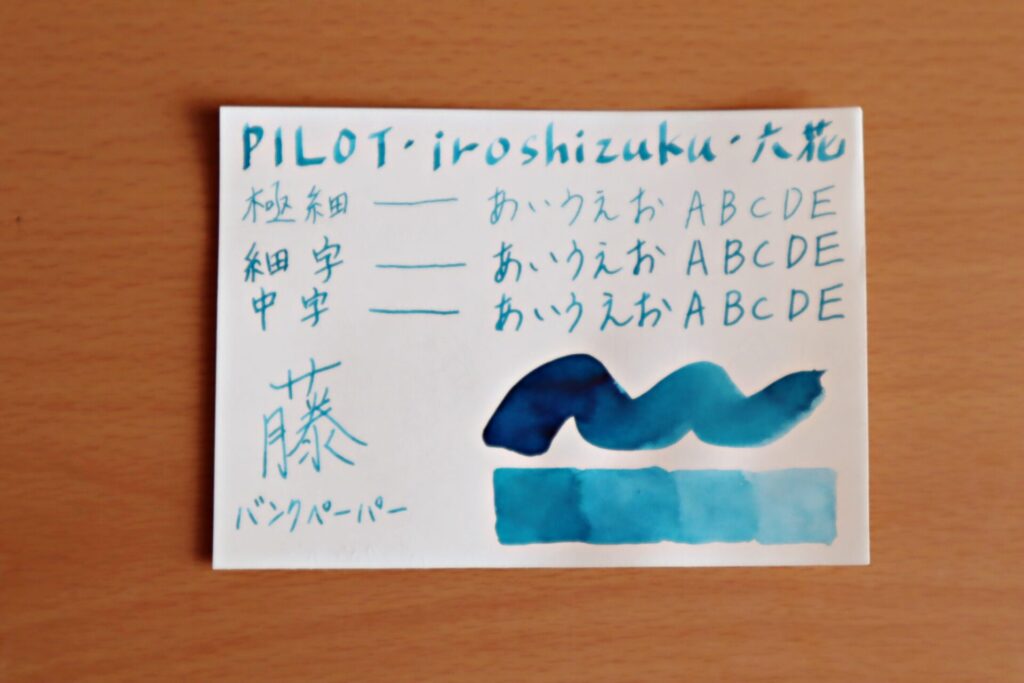 PILOT・iroshizuku・六花
極細 — あいうえお ABCDE
細字 — あいうえお ABCDE
中字 — あいうえお ABCDE
藤
バンクペーパー